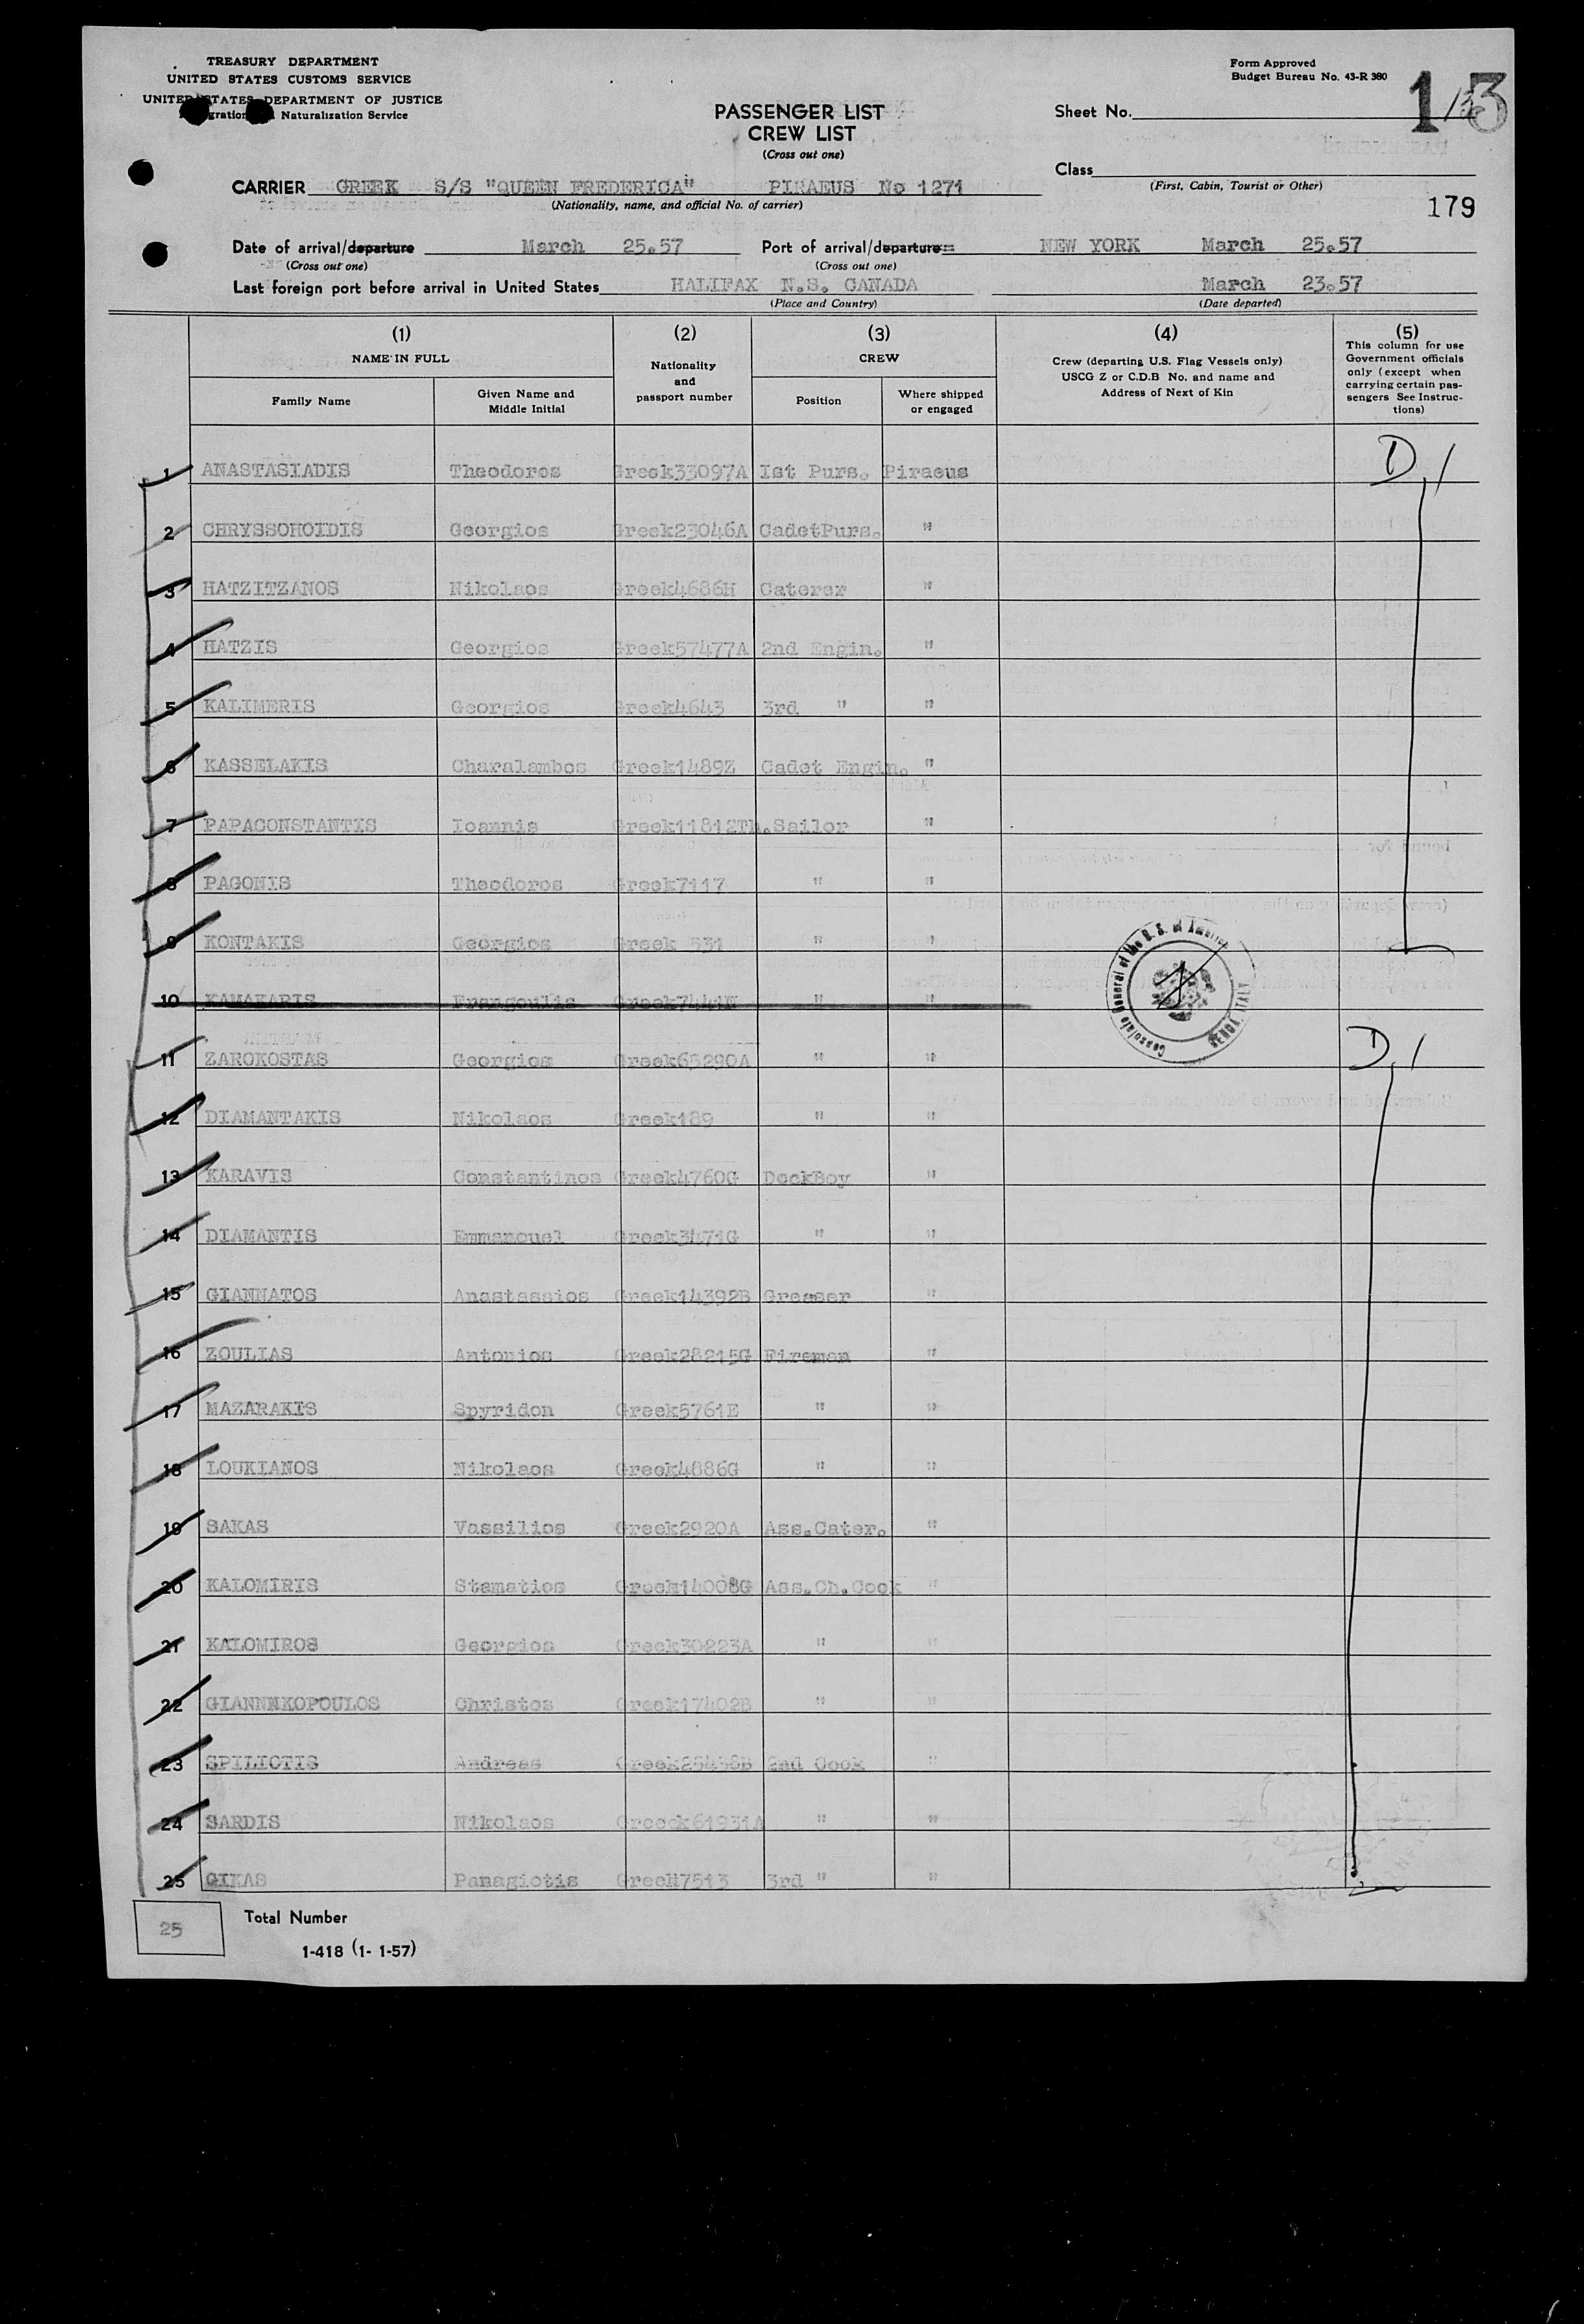 TREASURY DEPARTMENT
UNITED STATES CUSTOMS SERVICE
UNITED STATES DEPARTMENT OF JUSTICE
Naturalization Service
Form Approved
Budget Bureau No. 43-R 380
PASSENGER LIST
CREW LIST
(Cross out one)
Sheet No.
Class
(First, Cabin, Tourist or Other)
179
CARRIER GREEK S/S "QUEEN FREDERICA" PIRAEUS No 1271
(Nationality, name, and official No. of carrier)
Date of arrival/departure March 25.57 Port of arrival/departure NEW YORK March 25.57
(Cross out one) (Cross out one)
Last foreign port before arrival in United States HALIFAX N.S. CANADA March 23.57
(Place and Country) (Date departed)
(1) (2) (3) (4) (5)
NAME IN FULL
Family Name
Given Name and Middle Initial
Nationality and passport number
CREW
Position
Where shipped or engaged
Crew (departing U.S. Flag Vessels only)
USCG Z or C.D.B No. and name and
Address of Next of Kin
This column for use
Government officials
only (except when
carrying certain pas-
sengers See Instruc-
tions)
1 ANASTASIADIS Theodoros Greek33097A Ist Purs. Piraeus D,1
2 CHRYSSOHOIDIS Georgios Greek23046A CadetPurs. "
3 HATZITZANOS Nikolaos Greek4686H Caterer "
4 HATZIS Georgios Greek57477A 2nd Engin. "
5 KALIMERIS Georgios Greek4643 3rd " "
6 KASSELAKIS Charalambos Greek1489Z Cadet Engin. "
7 PAPACONSTANTIS Ioannis Greek11812Th.Sailor "
8 PAGONIS Theodoros Greek7117 " "
9 KONTAKIS Georgios Greek 531 " "
10 KAMAKARIS Frangoulis Greek7441N " "
Consulate General of the U. S. of America
GENOA, ITALY
11 ZAROKOSTAS Georgios Greek65290A " " D,1
12 DIAMANTAKIS Nikolaos Greek189 " "
13 KARAVIS Constantinos Greek4760G DeckBoy "
14 DIAMANTIS Emmanouel Greek3471G " "
15 GIANNATOS Anastassios Greek14392B Greaser "
16 ZOULIAS Antonios Greek28215G Fireman "
17 MAZARAKIS Spyridon Greek5761E " "
18 LOUKIANOS Nikolaos Greek4886G " "
19 SAKAS Vassilios Greek2920A Ass.Cater. "
20 KALOMIRIS Stamatios Greek14008G Ass.Ch.Cook "
21 KALOMIROS Georgios Greek30223A " "
22 GIANNNKOPOULOS Christos Greek17402B " "
23 SPILIOTIS Andreas Greek25438B 2nd Cook "
24 SARDIS Nikolaos Greeck61931A " "
25 GIKAS Panagiotis GreeH7513 3rd " "
25 Total Number
1-418 (1- 1-57)